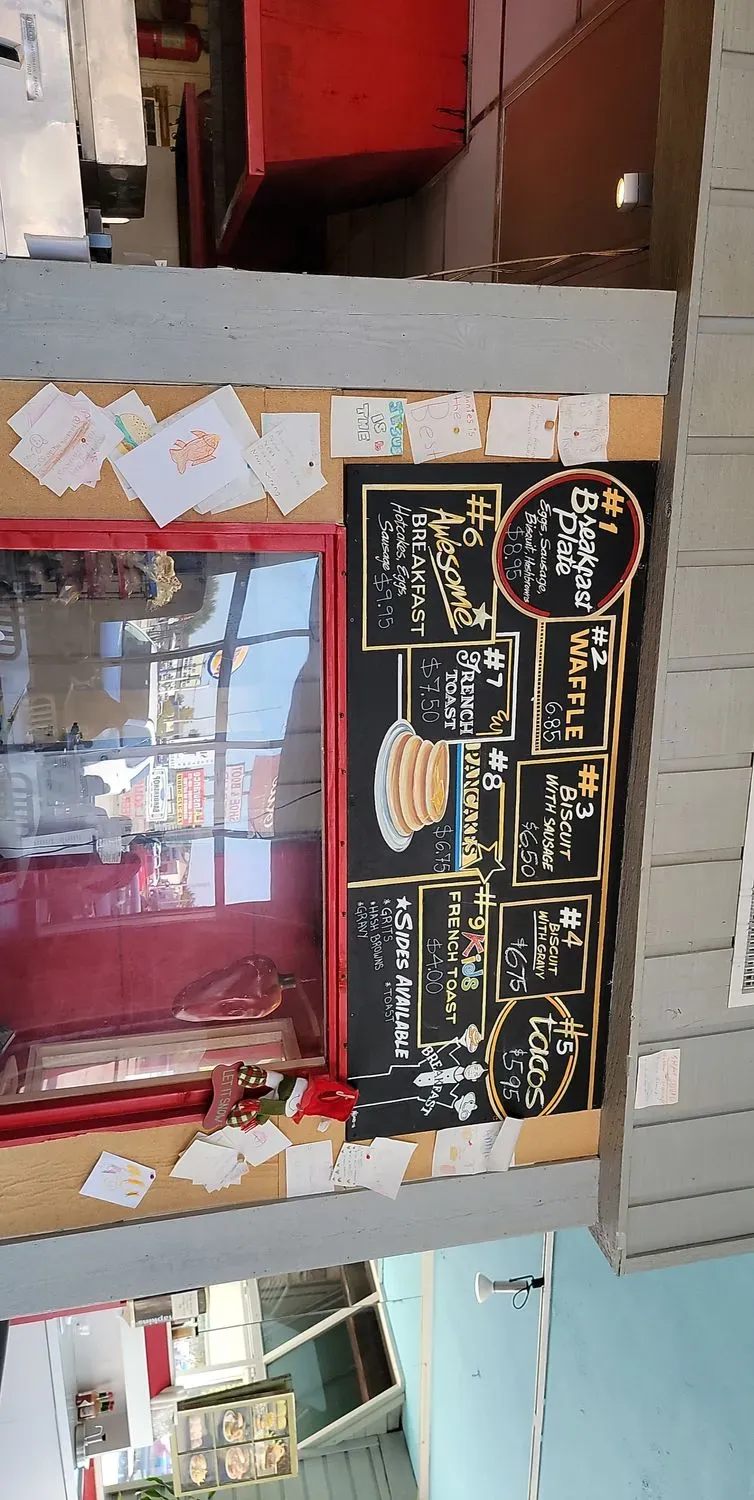 #1
Breakfast
Plate
Eggs, Sausage,
Biscuit, Hashbrowns
$8.95
#2
WAFFLE
6.85
#3
BISCUIT
WITH SAUSAGE
$6.50
#4
BISCUIT
WITH GRAVY
$6.75
#5
tacos
$5.95
#6
Awesome
BREAKFAST
Hotcakes, Eggs,
Sausage $9.95
#7
FRENCH
TOAST
$7.50
#8
PANCAKES
$6.75
#9 Kids
FRENCH TOAST
$4.00
SIDES AVAILABLE
GRITS
TOAST
HASH BROWNS
GRAVY
BREAKFAST
JESUS
IS
THE
the
Best
LET IT SNOW